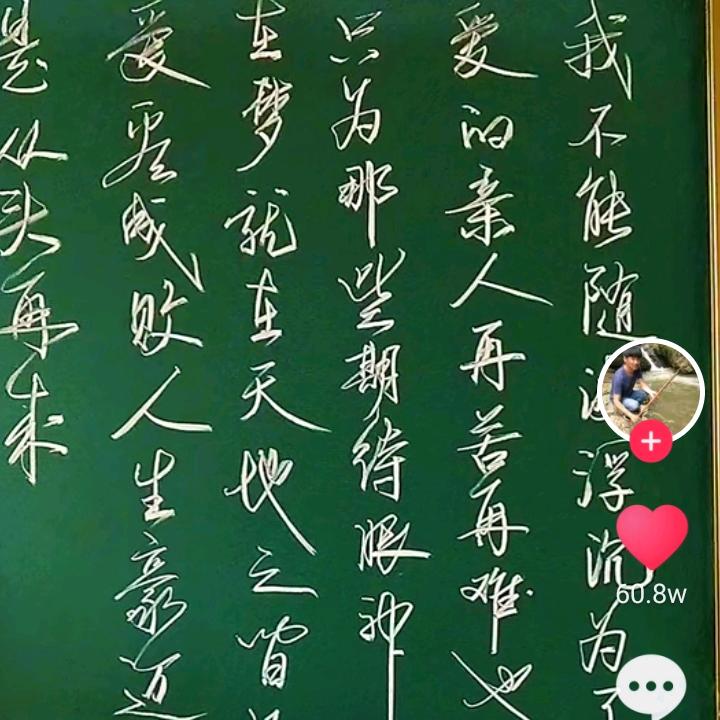 我不能随浮沉为了
爱的亲人再苦再难也
只为那些期待眼神
在梦就在天地之皆
爱成败人生豪迈
是从头再来
60.8w